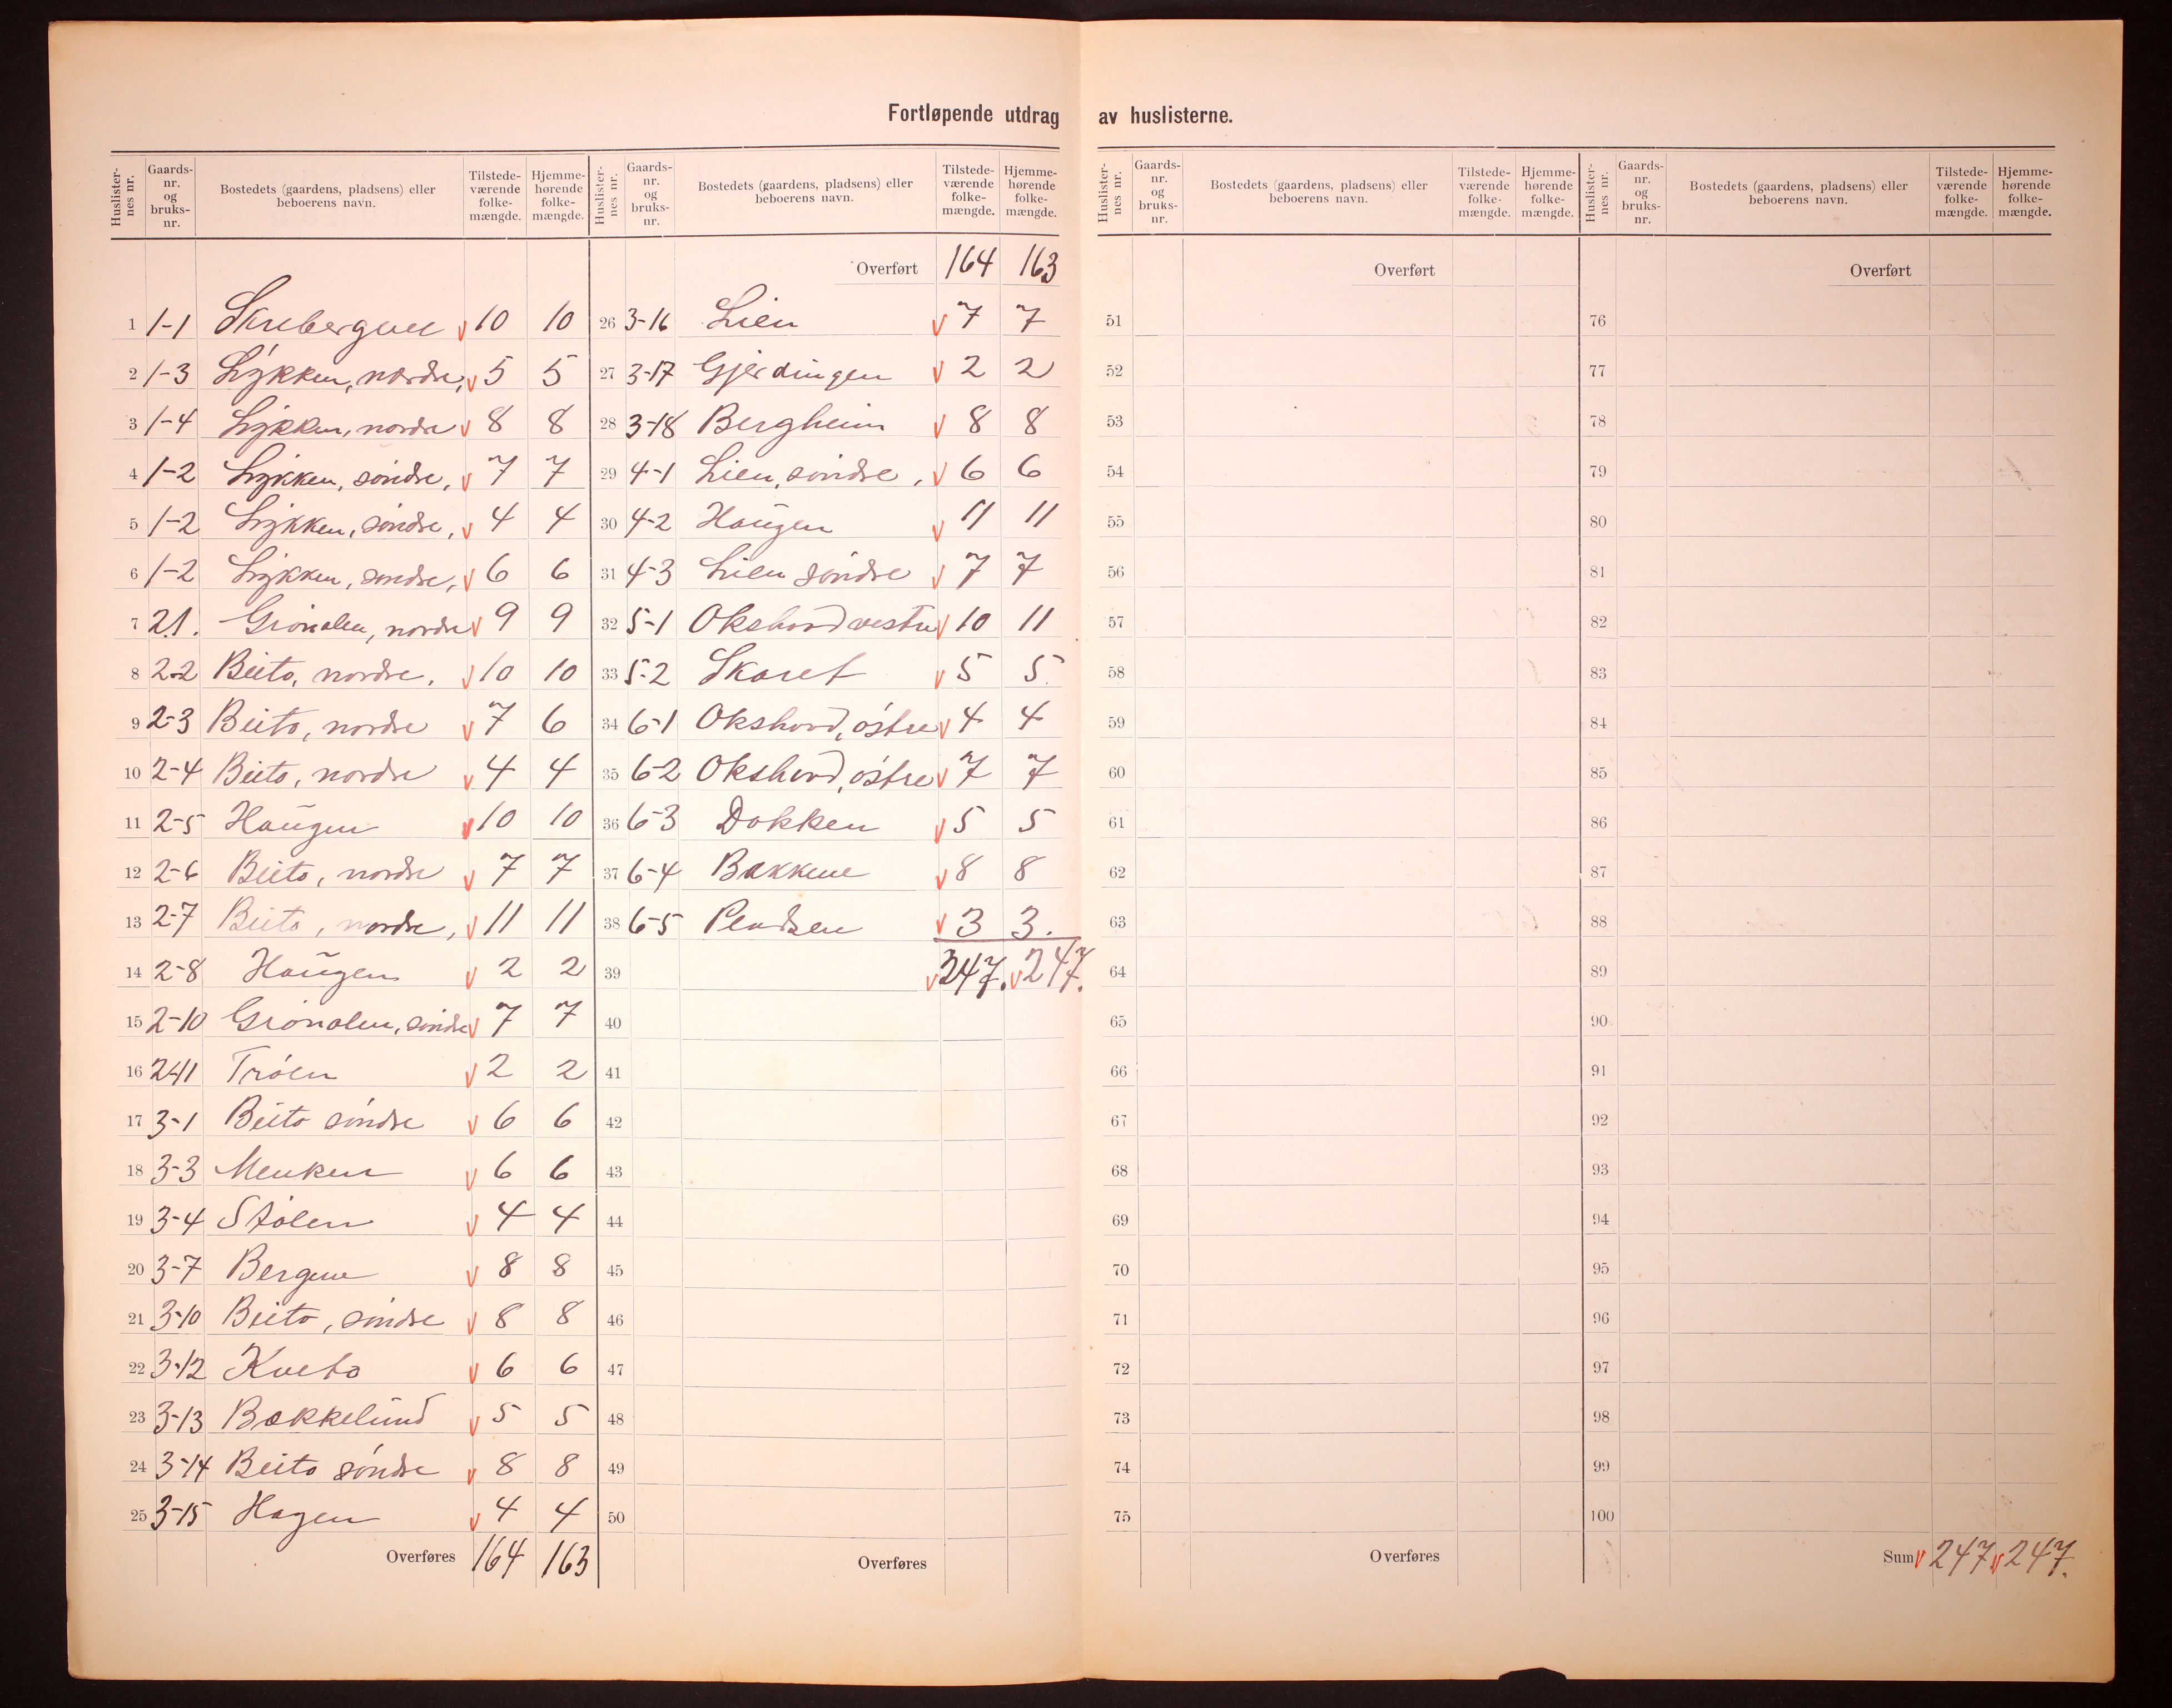 Fortløpende utdrag av huslisterne.
Huslister-nes nr. Gaards-nr. og bruks-nr. Bostedets (gaardens, pladsens) eller beboerens navn. Tilstede-værende folke-mængde. Hjemme-hørende folke-mængde.
1 1-1 Skrebergene v 10 10
2 1-3 Lykken, nordre, v 5 5
3 1-4 Lykken, nordre v 8 8
4 1-2 Lykken, søndre, v 7 7
5 1-2 Lykken, søndre, v 4 4
6 1-2 Lykken, søndre, v 6 6
7 2.1. Grønolen, nordre v 9 9
8 2-2 Beito, nordre, v 10 10
9 2-3 Beito, nordre v 7 6
10 2-4 Beito, nordre v 4 4
11 2-5 Haugen v 10 10
12 2-6 Beito, nordre v 7 7
13 2-7 Beito, nordre, v 11 11
14 2-8 Haugen v 2 2
15 2-10 Grønolen, søndre v 7 7
16 2-11 Trøen v 2 2
17 3-1 Beito søndre v 6 6
18 3-3 Menken v 6 6
19 3-4 Stølen v 4 4
20 3-7 Bergene v 8 8
21 3-10 Beito, søndre v 8 8
22 3-12 Kveto v 6 6
23 3-13 Bakkelund v 5 5
24 3-14 Beito søndre v 8 8
25 3-15 Hagen v 4 4
Overføres 164 163
Huslister-nes nr. Gaards-nr. og bruks-nr. Bostedets (gaardens, pladsens) eller beboerens navn. Tilstede-værende folke-mængde. Hjemme-hørende folke-mængde.
Overført 164 163
26 3-16 Lien v 7 7
27 3-17 Gjerdingen v 2 2
28 3-18 Bergheim v 8 8
29 4-1 Lien, søndre, v 6 6
30 4-2 Haugen v 11 11
31 4-3 Lien søndre v 7 7
32 5-1 Okshovd vestre v 10 11
33 5-2 Skaret v 5 5.
34 6-1 Okshovd, østre v 4 4
35 6-2 Okshovd, østre v 7 7
36 6-3 Dokken v 5 5
37 6-4 Bakkene v 8 8
38 6-5 Pladsen v 3 3.
39 v 247. v 247.
40
41
42
43
44
45
46
47
48
49
50
Overføres
Huslister-nes nr. Gaards-nr. og bruks-nr. Bostedets (gaardens, pladsens) eller beboerens navn. Tilstede-værende folke-mængde. Hjemme-hørende folke-mængde.
Overført
51
52
53
54
55
56
57
58
59
60
61
62
63
64
65
66
67
68
69
70
71
72
73
74
75
Overføres
Huslister-nes nr. Gaards-nr. og bruks-nr. Bostedets (gaardens, pladsens) eller beboerens navn. Tilstede-værende folke-mængde. Hjemme-hørende folke-mængde.
Overført
76
77
78
79
80
81
82
83
84
85
86
87
88
89
90
91
92
93
94
95
96
97
98
99
100
Sum v 247 v 247.